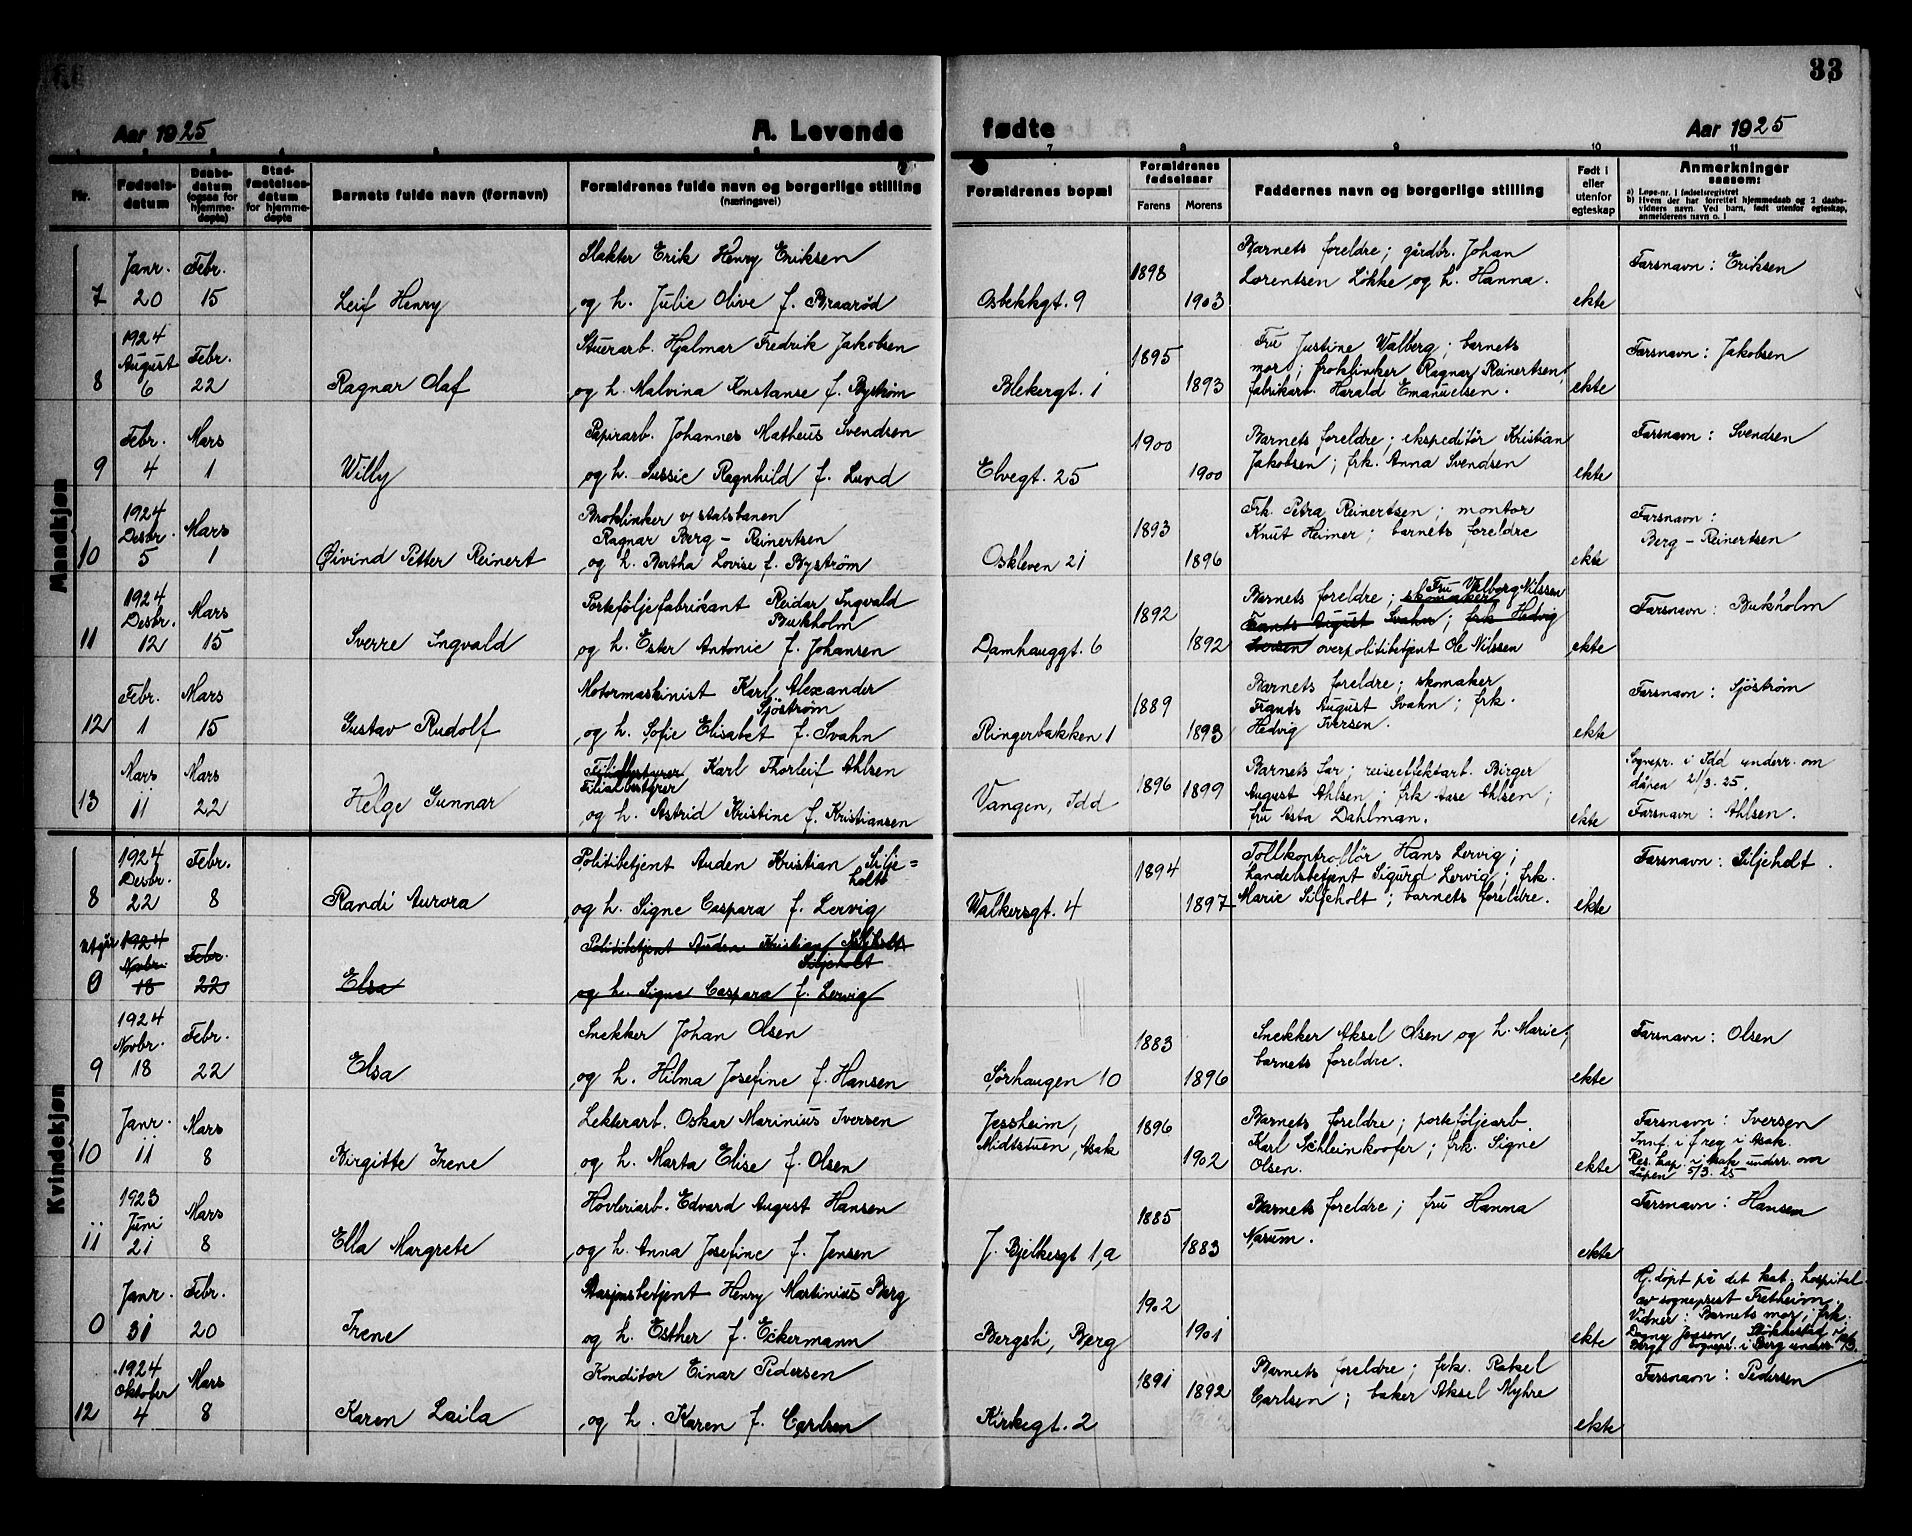 33
Aar 1925
A. Levende
fødte
Aar 1925
7 8 9 10 11
Nr.
Fødsels-
datum
Daabs-
datum
(ogsaa for
hjemme-
døpte)
Stad-
fæstelses-
datum
for hjemme-
døpte
Barnets fulde navn (fornavn)
Forældrenes fulde navn og borgerlige stilling
(næringsvei)
Forældrenes bopæl
Forældrenes
fødselsaar
Farens
Morens
Faddernes navn og borgerlige stilling
Født i
eller
utenfor
egteskap
Anmerkninger
saasom:
a) Løpe-nr. i fødselsregistret
b) Hvem der har forrettet hjemmedaab og 2 daabs-
vidners navn. Ved barn, født utenfor egteskap,
anmelderens navn o. l
Mandkjøn
7
Janr.
20
Febr.
15
Leif Henry
Slakter Erik Henry Eriksen
og h. Julie Olive f. Braarød
Osbekkgt. 9
1898
1903
Barnets foreldre; gårdbr. Johan
Lorentsen Løkke og h. Hanna.
ekte
Farsnavn: Eriksen
8
1924
August
6
Febr.
22
Ragnar Olaf
Stuerarb. Hjalmar Fredrik Jakobsen
og h. Malvina Konstanse f. Bystrøm
Blekergt. 1
1895
1893
Fru Justine Walberg; barnets
mor; broklinker Ragnar Reinertsen;
fabrikarb. Harald Emanuelsen.
ekte
Farsnavn: Jakobsen
9
Febr.
4
Mars
1
Willy
Papirarb. Johannes Matheus Svendsen
og h. Sussie Ragnhild f. Lund
Elvegt. 25
1900
1900
Barnets foreldre; ekspeditør Kristian
Jakobsen; frk. Anna Svendsen
ekte
Farsnavn: Svendsen
10
1924
Desbr.
5
Mars
1
Øivind Petter Reinert
Broklinker v/ statsbanen
Ragnar Berg - Reinertsen
og h. Bertha Lovise f. Byström
Oskleven 21
1893
1896
Frk. Petra Reinertsen; montør
Knut Heimer; barnets foreldre
ekte
Farsnavn:
Berg - Reinertsen
11
1924
Desbr.
12
Mars
15
Sverre Ingvald
Porteføljefabrikant Reidar Ingvald
Bukholm
og h. Ester Antonie f. Johansen
Damhauggt. 6
1892
1892
Fru Valborg Nilssen
Barnets foreldre; skomaker
Frants August Svahn; frk Hedvig
Iversen overpolitibetjent Ole Nilssen
ekte
Farsnavn: Bukholm
12
Febr.
1
Mars
15
Gustav Rudolf
Motormaskinist Karl Alexander
Sjöström
og h. Sofie Elisabet f. Svahn
Ringerbakken 1
1889
1893
Barnets foreldre; skomaker
Frands August Svahn; frk.
Hedvig Iversen.
ekte
Farsnavn: Sjöström
13
Mars
11
Mars
22
Helge Gunnar
Filialbestyrer Karl Thorleif Ahlsen
Filialbestyrer
og h. Astrid Kristine f. Kristiansen
Vangen, Idd
1896
1899
Barnets far; reiseeffektarb. Birger
August Ahlsen; frk Aase Ahlsen;
fru Asta Dahlman.
ekte
Sognepr. i Idd underr. om
dåpen 21/3. 25.
Farsnavn: Ahlsen.
Kvindekjøn
8
1924
Desbr.
22
Febr.
8
Randi Aurora
Politibetjent Auden Kristian Silje=
holt
og h. Signe Caspara f. Lervig
Walkersgt. 4
1894
1897
Tollkontrollör Hans Lervig;
handelsbetjent Sigurd Lervig; frk.
Marie Siljeholt; barnets foreldre.
ekte
Farsnavn: Siljeholt.
utgår
0
1924
Novbr.
18
Febr.
22
Elsa
Politibetjent Auden Kristian
Siljeholt
og h. Signe Caspara f. Lervig
9
1924
Novbr.
18
Febr.
22
Elsa
Snekker Johan Olsen
og h. Hilma Josefine f. Hansen
Sørhaugen 10
1883
1896
Snekker Aksel Olsen og h. Marie;
barnets foreldre.
ekte
Farsnavn: Olsen
10
Janr.
11
Mars
8
Birgitte Irene
Lekterarb. Oskar Marinius Iversen
og h. Marta Elise f. Olsen
Jessheim,
Midtstuen, Asak
1896
1902
Barnets foreldre; porteföljearb.
Karl Schleinkoofer; frk. Signe
Olsen.
ekte
Farsnavn: Iversen
Innf. i f reg i Asak.
Res. kap. i Asak underr. om
dåpen 5/3. 25
11
1923
Juni
21
Mars
8
Ella Margrete
Høvleriarb. Edvard August Hansen
og h. Anna Josefine f. Jensen
J. Bjelkesgt 1,a
1885
1883
Barnets foreldre; fru Hanna
Narum.
ekte
Farsnavn: Hansen
0
Janr.
31
Febr.
20
Irene
Stasjonsbetjent Henry Martinius Berg
og h. Esther f. Eckermann
Bergsli, Berg
1902
1901
ekte
Hj. døpt på det kat. hospital
av sogneprest Fretheim.
Vidner: Barnets mor; frk.
Dagny Jessen,
Berg. Sognepr. i Berg underr.
12
1924
Oktober
4
Mars
8
Karen Laila
Konditor Einar Pedersen
og h. Karen f. Carlsen
Kirkegt. 2
1891
1892
Barnets foreldre; frk. Rakel
Carlsen; baker Aksel Myhre
ekte
Farsnavn: Pedersen